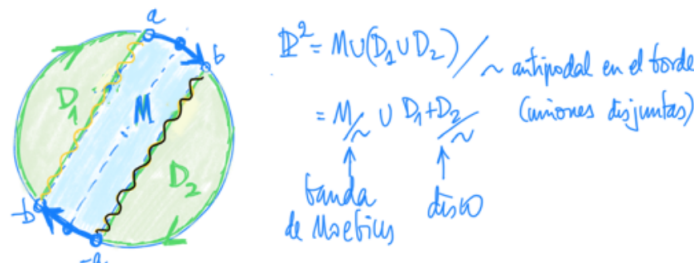 a
b
D₁
M
D₂
-b
-a
ℙ² = M∪(D₁∪D₂)/∼ antipodal en el borde
= M/∼ ∪ D₁+D₂/∼ (uniones disjuntas)
↑ ↑
banda disco
de Moebius